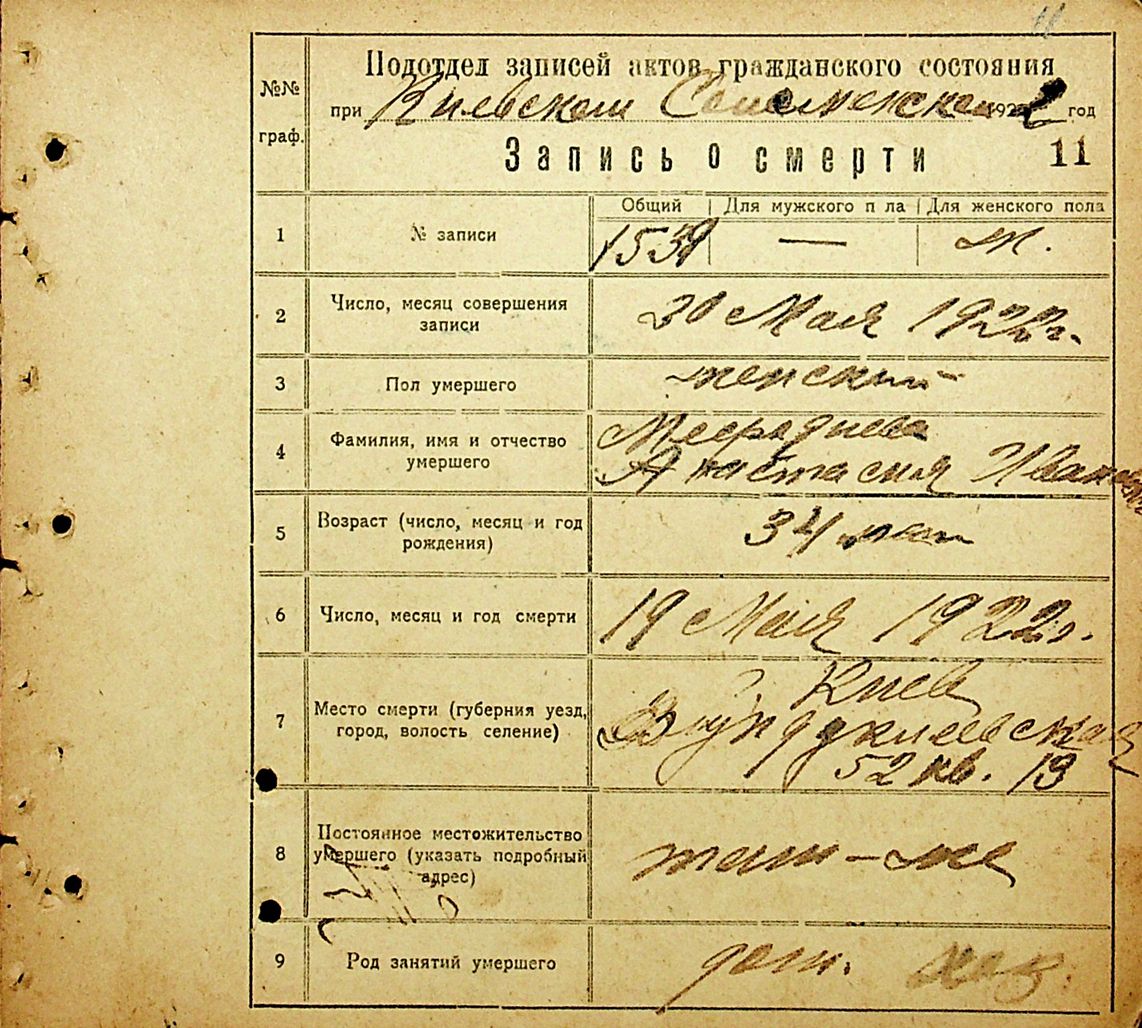 Подотдел записей актов гражданского состояния
№№ при Киевском 1922 год
граф. Запись о смерти 11
Общий Для мужского п ла Для женского пола
1 № записи 1539 — ж.
2 Число, месяц совершения записи 30 Мая 1922 г.
3 Пол умершего женский
4 Фамилия, имя и отчество умершего
Анастасия Ивановна
5 Возраст (число, месяц и год рождения) 34 лет
6 Число, месяц и год смерти 19 Мая 1922 г.
7 Место смерти (губерния уезд, город, волость селение) г. Киев
Фундуклеевская
52 кв. 13
8 Постоянное местожительство умершего (указать подробный адрес) там-же
9 Род занятий умершего дом. хоз.